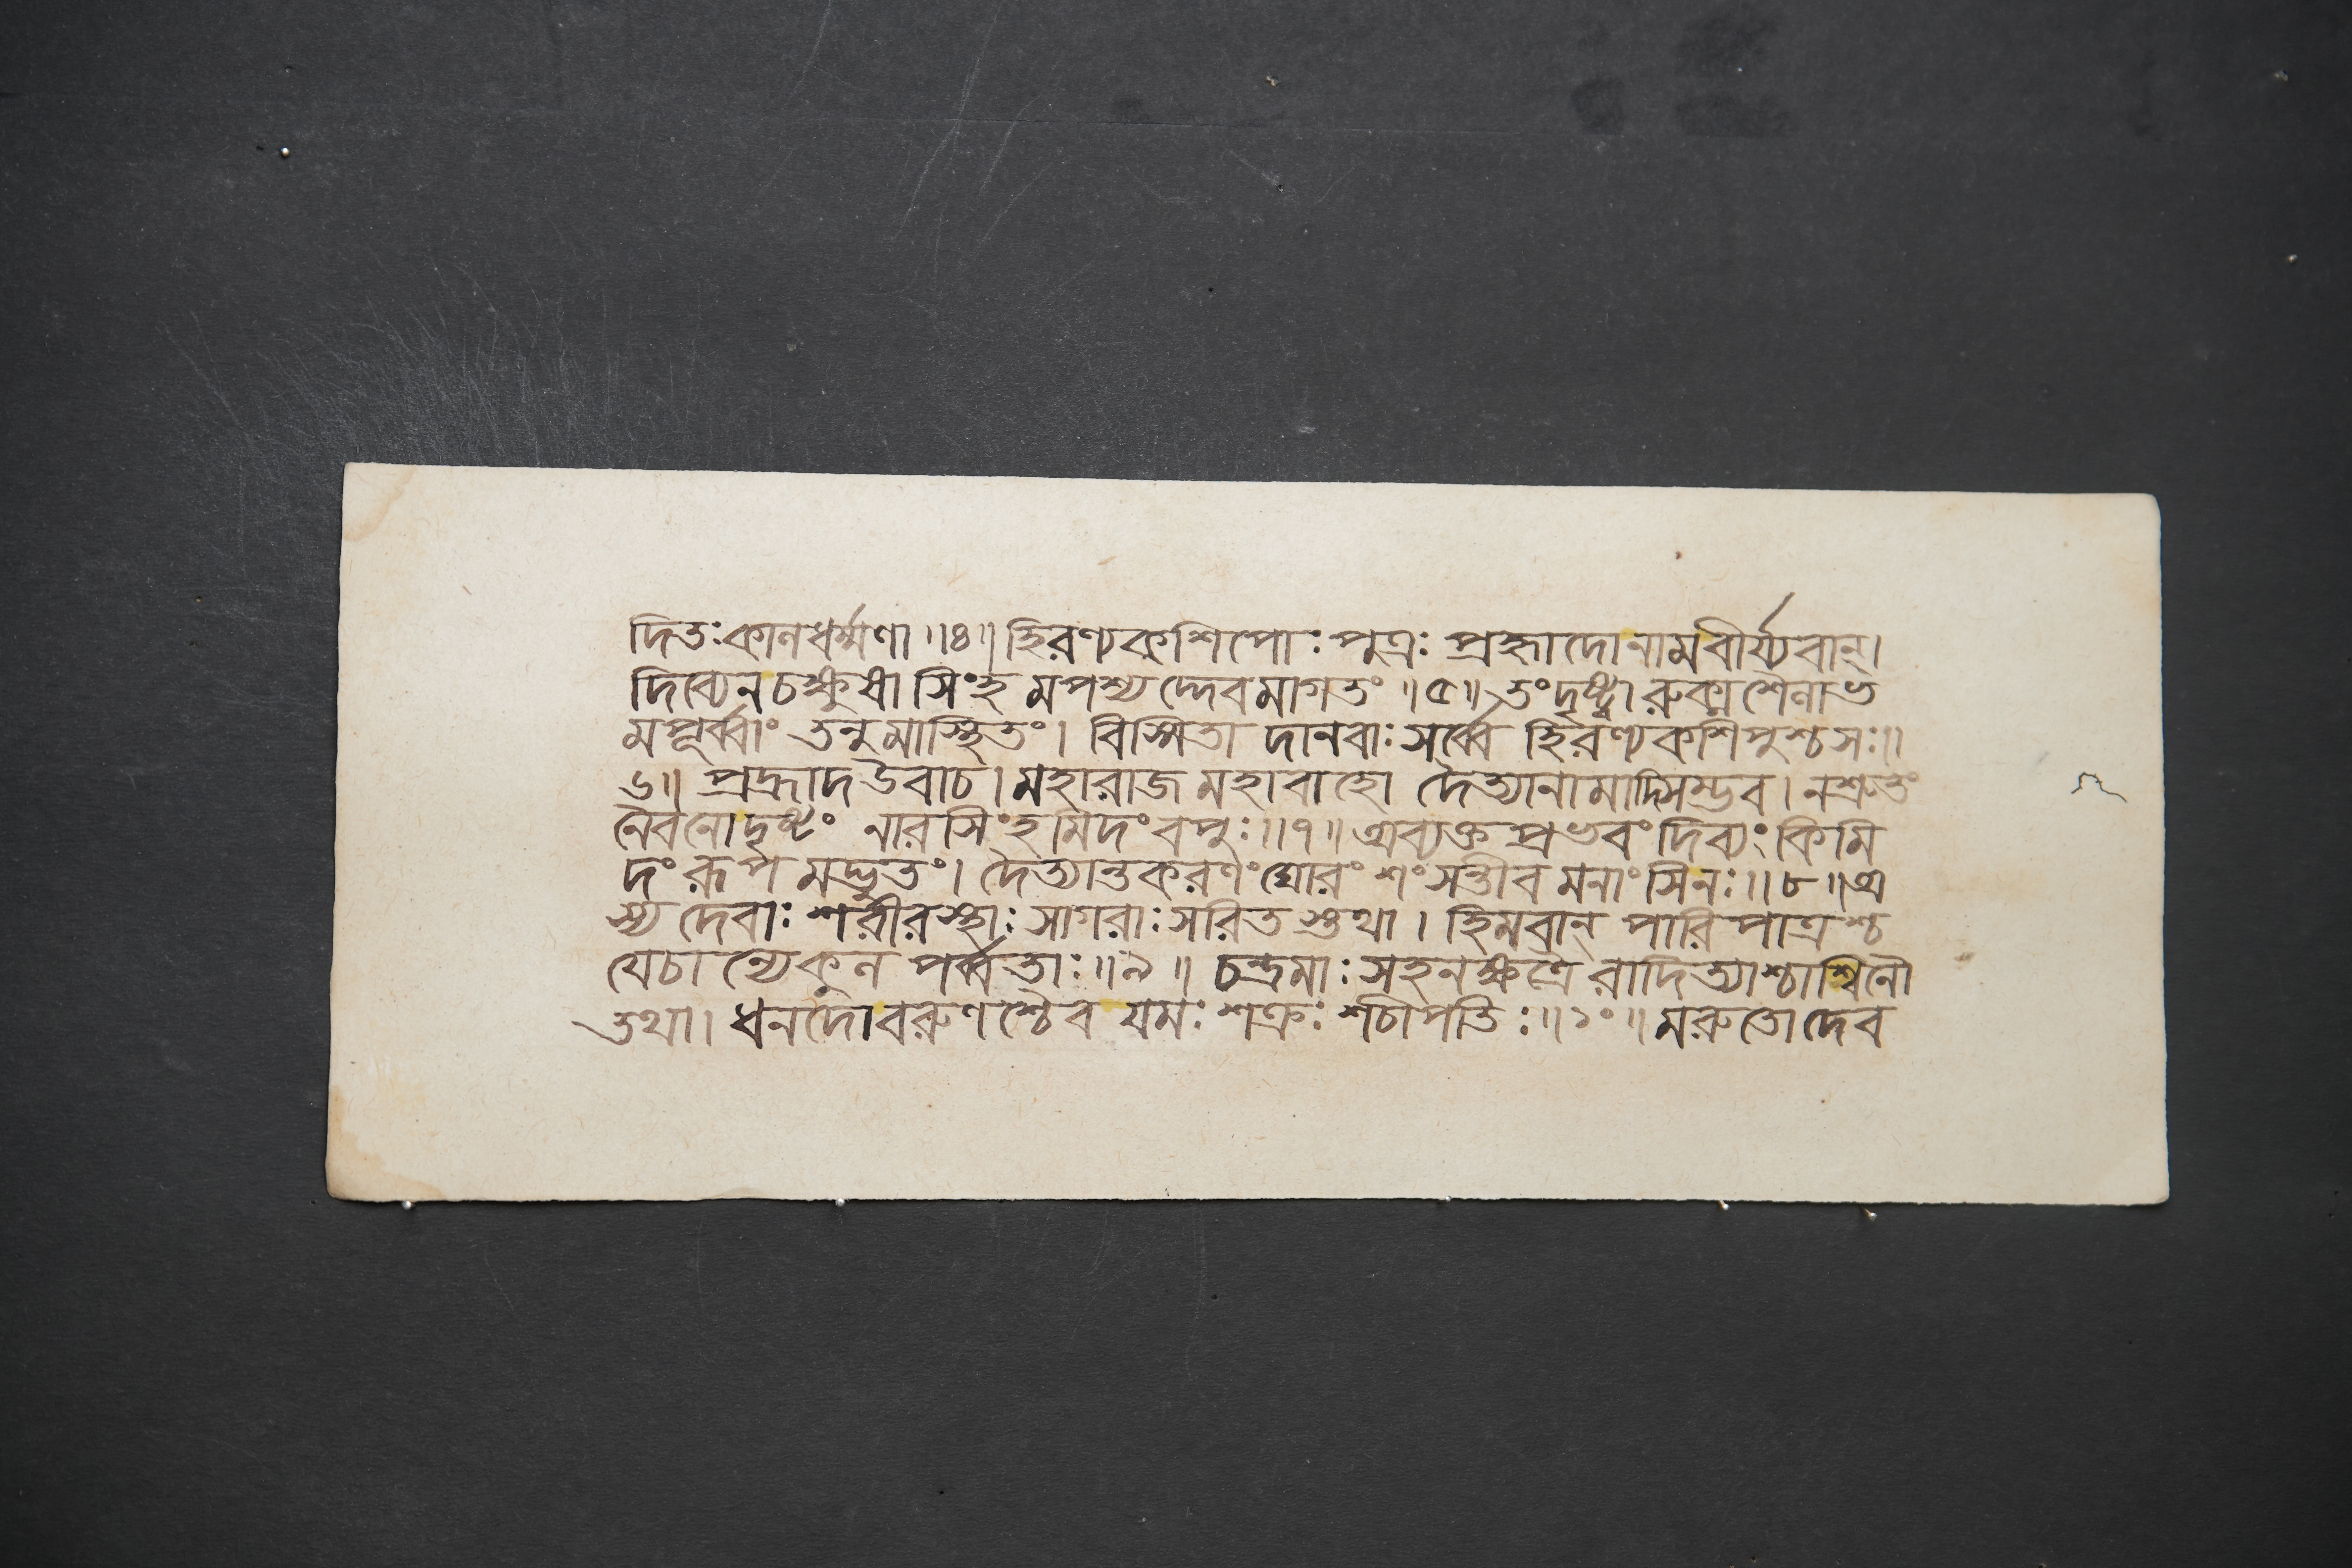 দিতঃকানধর্ম্মণা ॥৪॥ হিরণ্যকশিপোঃ পুত্রঃ প্রহ্লাদোনামবীর্য্যবান্।
দিব্যেনচক্ষুষা সিংহ মপশ্যদ্দেবমাগতং ॥৫॥ তংদৃষ্ট্বা রুক্মশৈনাভ
মপূর্ব্বাং তনুমাস্থিতং। বিস্মিতা দানবাঃ সর্ব্বে হিরণ্যকশিপুশ্চসঃ॥
৬॥ প্রহ্লাদ উবাচ। মহারাজ মহাবাহো দৈত্যানামাদিসম্ভব। নশ্রুতং
নৈবনোদৃষ্টং নারসিংহমিদং বপুঃ॥৭॥ অব্যক্ত প্রভবং দিব্যং কিমি
দং রূপ মদ্ভুতং। দৈত্যান্তকরণং ঘোরং শংসন্তীব মনাংসিনঃ॥৮॥ অ
স্য দেবাঃ শরীরস্থাঃ সাগরাঃ সরিত স্তথা। হিমবান্ পারিপাত্রশ্চ
যেচান্যেকুন পর্ব্বতাঃ॥৯॥ চন্দ্রমাঃ সহনক্ষত্রৈ রাদিত্যাশ্চাশ্বিনৌ
তথা। ধনদোবরুণশ্চৈব যমঃ শক্রঃ শচীপতিঃ॥১০॥ মরুতোদেব